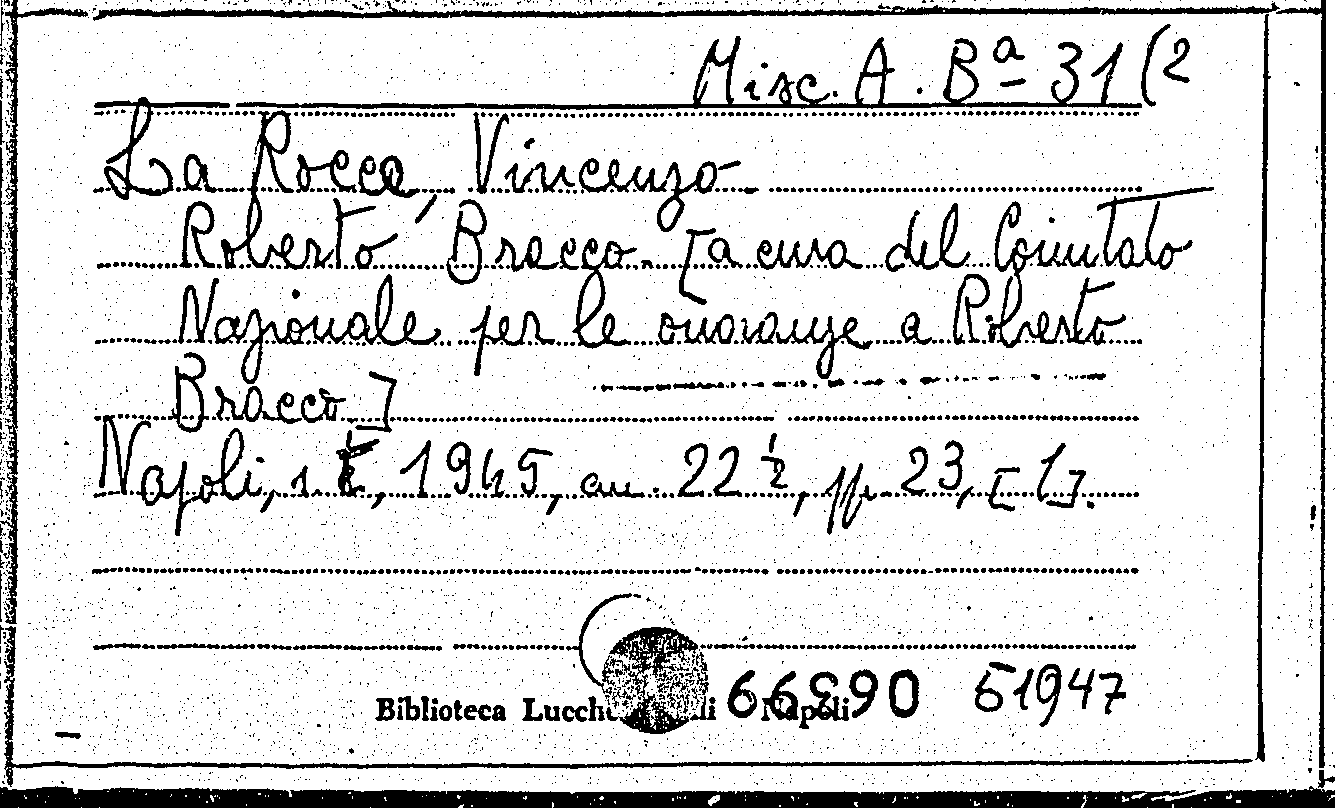 Misc. A. Bª 31 (2
La Rocca, Vincenzo
Roberto Bracco. [a cura del Comitato
Nazionale per le onoranze a Roberto
Bracco]
Napoli, s. t., 1945, cm. 22 ½, pp. 23, [1].
Biblioteca Napoli
066399 51947